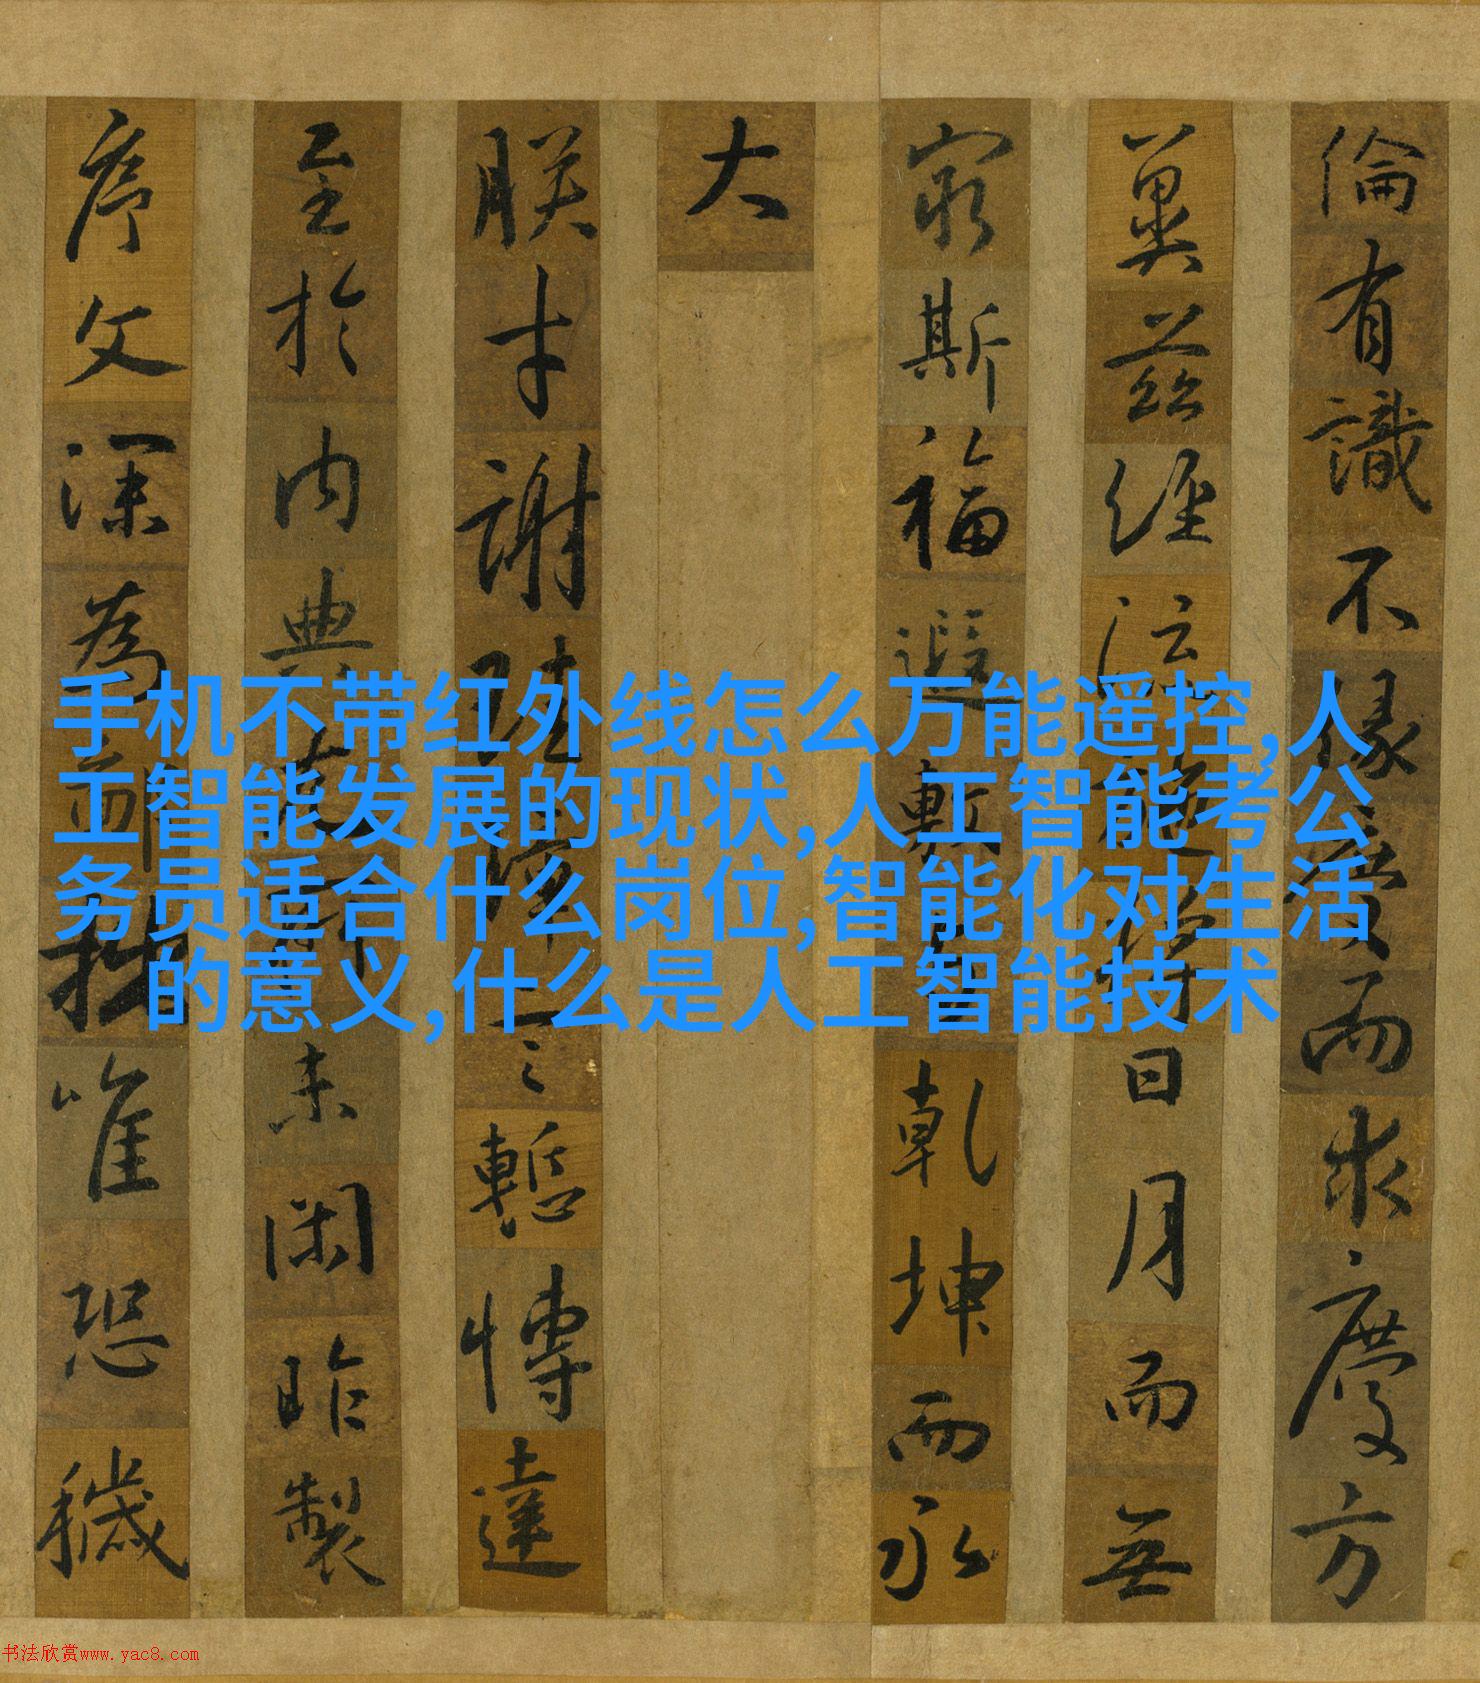 手机不带红外线怎么万能遥控,人
工智能发展的现状,人工智能考公
务员适合什么岗位,智能化对生活
的意义,什么是人工智能技术
倫有識不緣慶而求慶方
冀茲經流施將日月而無
窮斯福遐敷與乾坤而永
大
朕才謝珪璋言慙博達
至於內典尤所未閑昨製
序文深為鄙拙唯恐穢
书法欣赏www.yac8.com